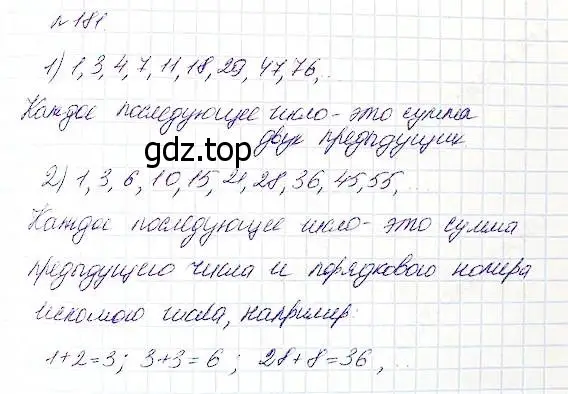 № 181.
1) 1, 3, 4, 7, 11, 18, 29, 47, 76, ...
Каждое последующее число - это сумма
двух предыдущих
gdz.top
2) 1, 3, 6, 10, 15, 21, 28, 36, 45, 55, ...
Каждое последующее число - это сумма
предыдущего числа и порядкового номера
искомого числа, например:
1+2=3; 3+3=6; 28+8=36, ...